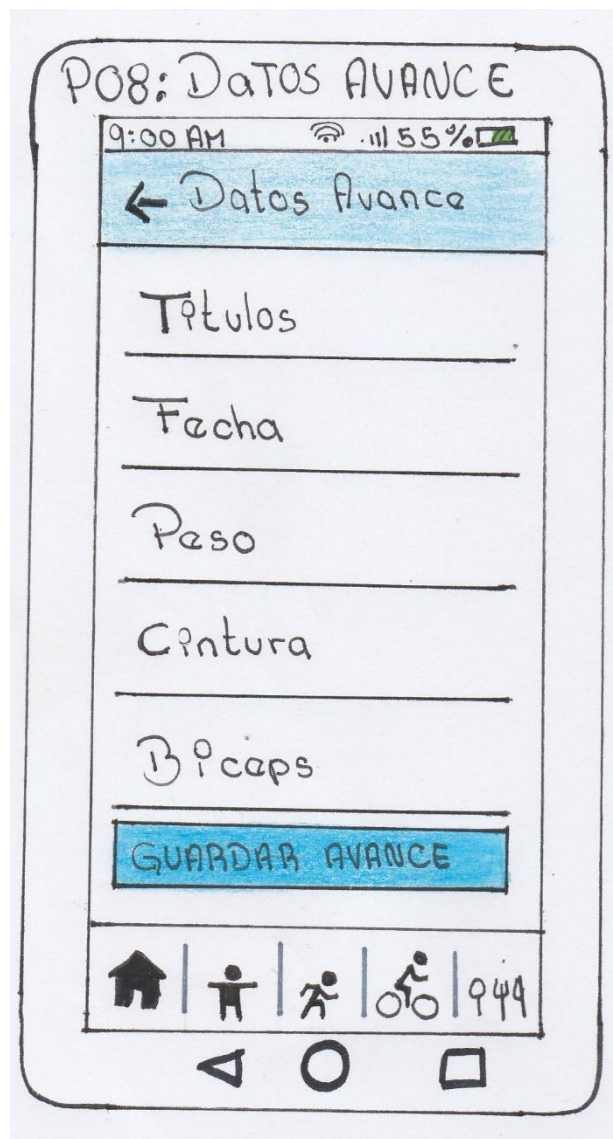 P08: DaTOS AVANCE
9:00 AM 55%
Datos Avance
Titulos
Fecha
Peso
Cintura
Biceps
GUARDAR AVANCE